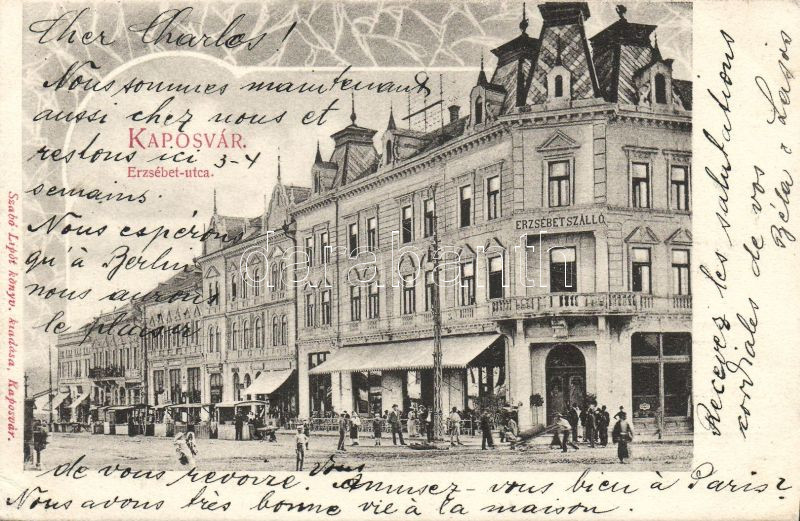 Cher Charlos!
Nous sommes maintenant
aussi chez nous et
restons ici 3-4
semains.
Nous espérons
qu'à Berlin
nous aurons
le plaisir
de vous revoire. Vous
Amusez-vous bien à Paris?
Nous avons très bonne vie à la maison.
Recevez les salutations
cordiales de vos
Béla & Lasos
KAPOSVÁR.
Erzsébet-utca.
ERZSÉBET SZÁLLÓ
Szabó Lipót könyv. kiadása, Kaposvár.
darabanth